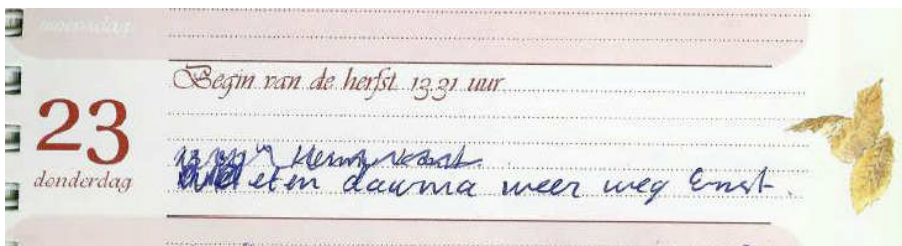 woensdag
Begin van de herfst 13.31 uur
23
donderdag
eten daarna weer weg Ernst.